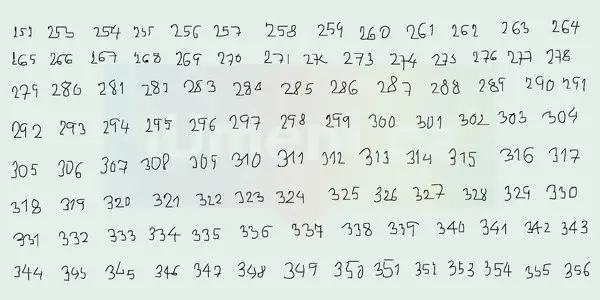 252 253 254 255 256 257 258 259 260 261 262 263 264
265 266 267 268 269 270 271 272 273 274 275 276 277 278
279 280 281 282 283 284 285 286 287 288 289 290 291
292 293 294 295 296 297 298 299 300 301 302 303 304
305 306 307 308 309 310 311 312 313 314 315 316 317
318 319 320 321 322 323 324 325 326 327 328 329 330
331 332 333 334 335 336 337 338 339 340 341 342 343
344 345 345 346 347 348 349 350 351 352 353 354 355 356